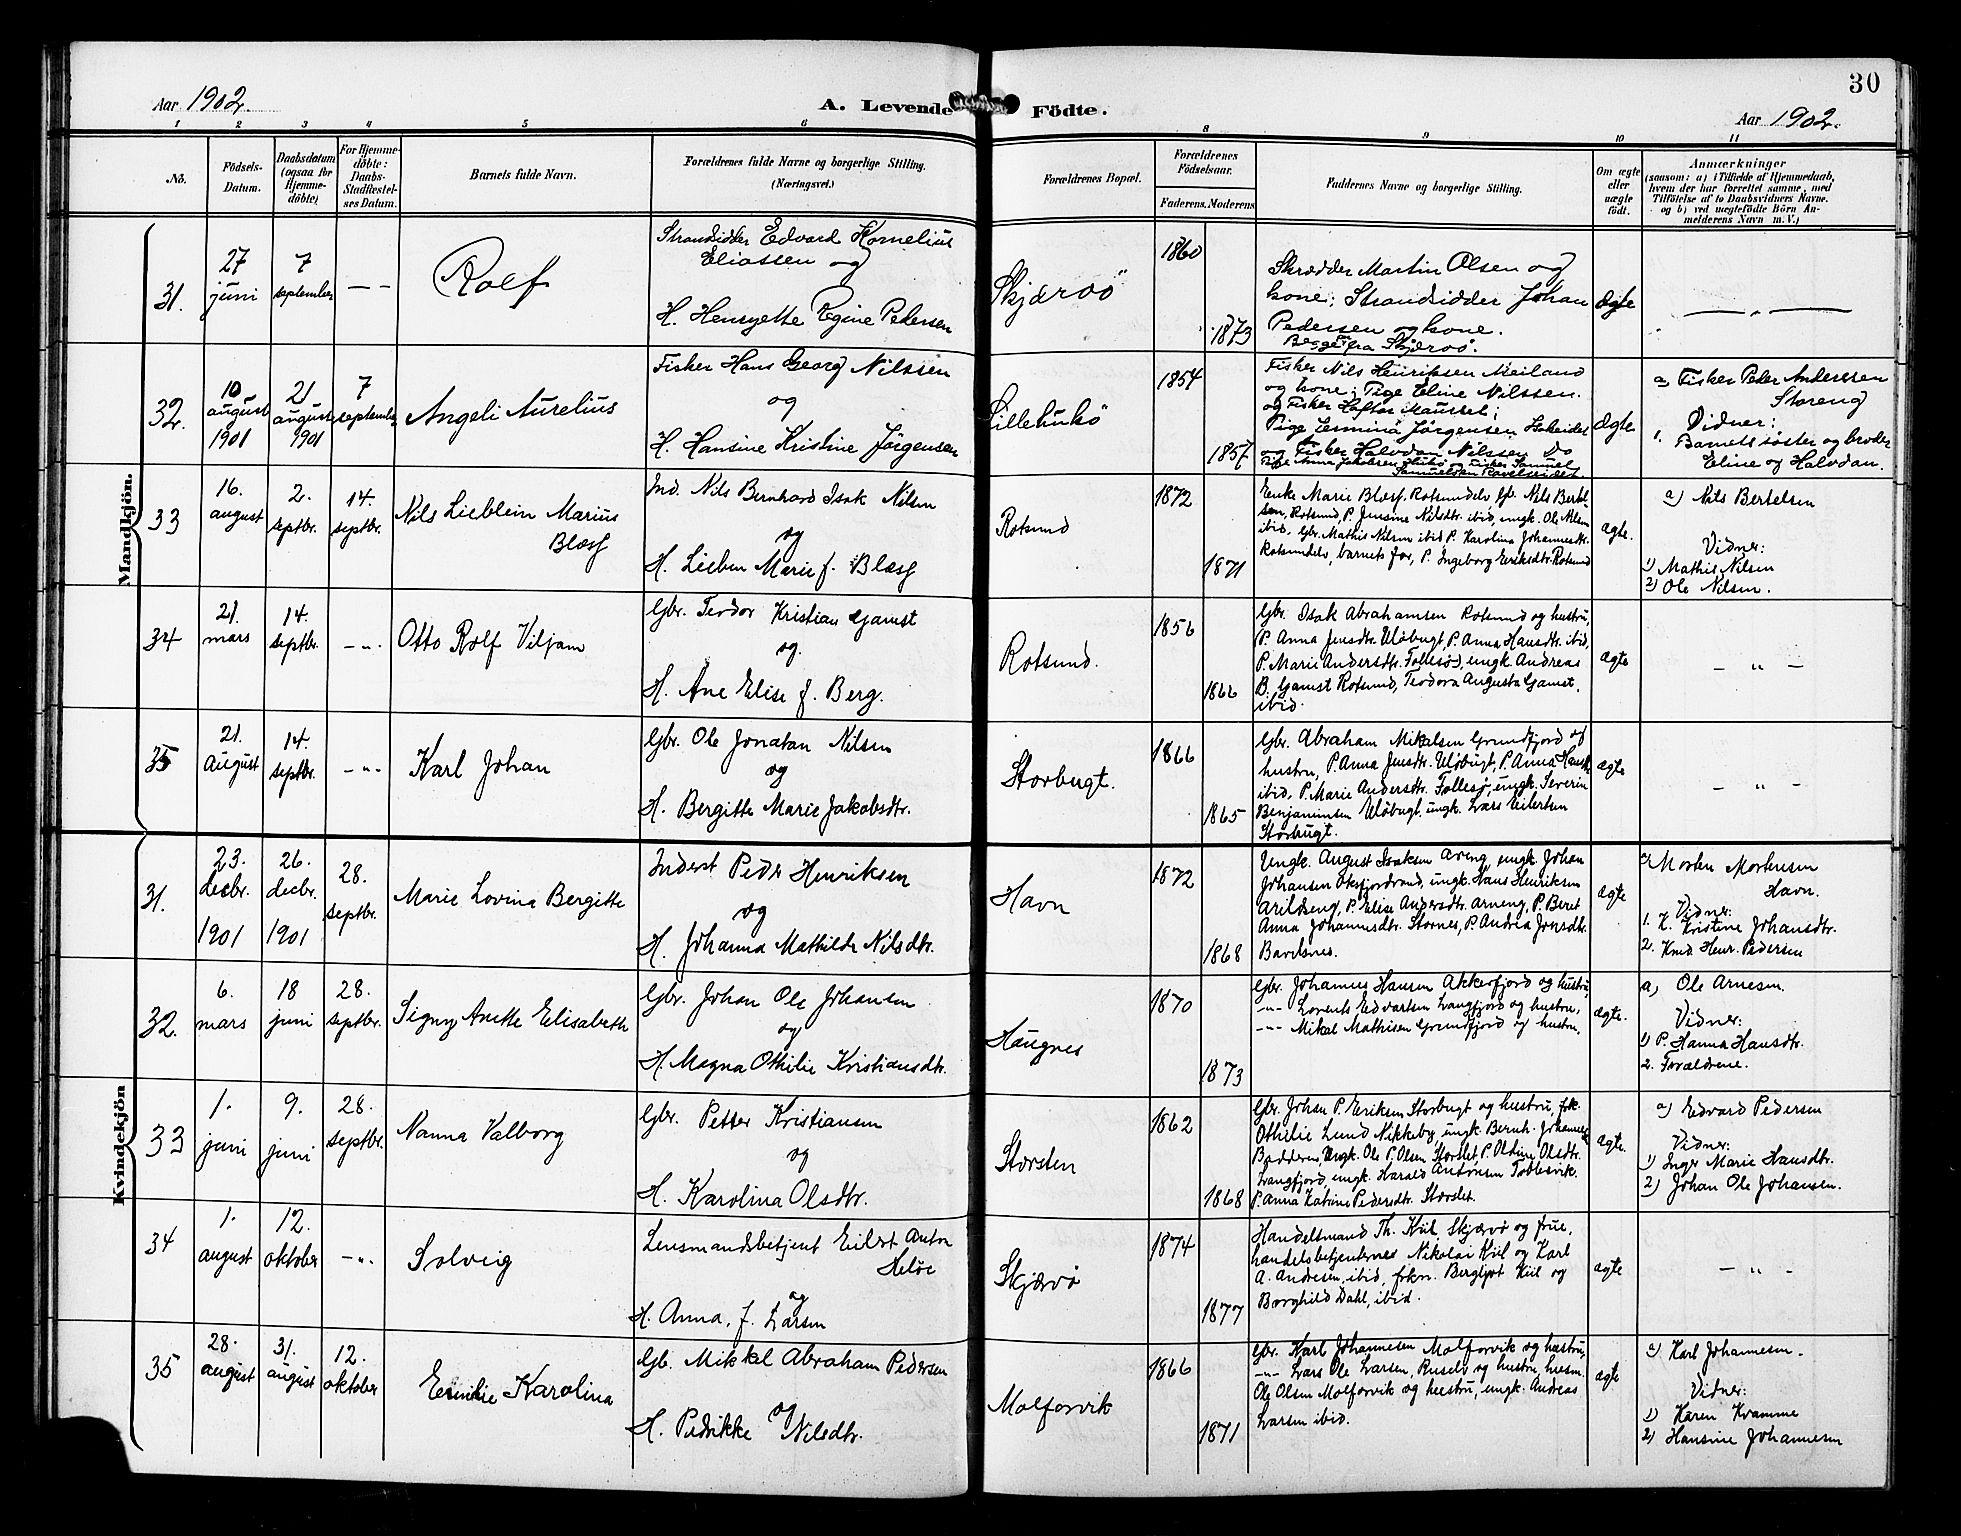 Aar 1902.
A. Levende Födte.
Aar 1902.
30
1 2 3 4 5 6 8 9 10 11
No.
Födsels-
Datum.
Daabsdatum
(ogsaa for
Hjemme-
döbte)
For Hjemme-
döbte:
Daabs-
Stadfæstel-
ses Datum.
Barnets fulde Navn.
Forældrenes fulde Navne og borgerlige Stilling.
(Næringsvei.)
Forældrenes Bopæl.
Forældrenes
Födselsaar.
Faderens. Moderens
Faddernes Navne og borgerlige Stilling.
Om ægte
eller
uægte
født.
Anmærkninger
(saasom: a) i Tilfælde af Hjemmedaab,
hvem der har forrettet samme, med
Tilföielse af to Daabsvidners Navne.
og b) ved uægtefödte Börn An-
melderens Navn m. V.)
Mandkjön.
31.
27
juni
7
september
— —
Rolf
Strandsidder Edvard Kornelius
Eliassen og
H. Henryette Regine Pedersen
Skjærvö
1860
1873
Skrædder Martin Olsen og
kone; Strandsidder Johan
Pedersen og kone.
Begge fra Skjærvö.
Ægte
— " —
32.
10
august
1901
21
august
1901
7
september
Angeli Aurelius
Fisker Hans Georg Nilssen
og
H. Hansine Kristine Jørgensen
Lillehukö
1854
1857
Fisker Nils Henriksen Meiland
og kone; Pige Eline Nilssen
og Fisker Hoftar
Pige Jørgensen
og Fisker Halvdan Nilssen Do
Pige Anna Jakobsen og Fisker Samuel
Samuelsen
Ægte
a Fisker Peder Andersen
Storeng
Vidner:
1. Barnets söster og broder
Eline og Halvdan.
33
16.
august
2.
septbr.
14.
septbr.
Nils Lieblein Marius
Blæsf
Ind. Nils Bernhard Isak Nilsen
og
H. Lieben Marie f. Blæsf
Rotsund
1872
1871
Enke Marie Blæsf. Rotsundelv Gbr. Nils Bertel
sen, Rotsund, P. Jensine Nilsdtr. ibid, ungk. Ole Nilsen
ibid, Gbr. Mathis Nilsen ibid P. Karolina Johannesdtr.
Rotsundelv, barnets far, P. Ingeborg Eriksdtr. Rotsund
ægte.
a) Nils Bertelsen
Vidner:
1) Mathis Nilsen
2) Ole Nilsen.
34
21.
mars
14.
septbr.
— " —
Otto Rolf Viljam
Gbr. Teodor Kristian Gamst
og
H. Ane Elise f. Berg.
Rotsund.
1856
1866
Gbr. Isak Abrahamsen Rotsund og hustru,
P. Anna Jensdtr. Uløbugt, P. Anna Hansdtr. ibid,
P. Marie Andersdtr. Follesø, ungk. Andreas
B. Gamst Rotsund, Teodora Augusta Gamst.
ibid.
ægte
— " —
35
21.
august
14.
septbr.
— " —
Karl Johan
Gbr. Ole Jonatan Nilsen
og
H. Bergitte Marie Jakobsdtr.
Storbugt.
1866
1865
Gbr. Abraham Mikalsen Grundfjord og
hustru, P. Anna Jensdtr. Uløbugt, P. Anna Hansdtr.
ibid, P. Marie Andersdtr. Follesø, ungk. Severin
Benjaminsen Uløbugt, ungk. Lars Eilertsen
Storbugt.
ægte
— " —
Kvindekjön
31.
23.
decbr.
1901
26.
decbr.
1901
28.
septbr.
Marie Lovina Bergitte
Inderst Peder Henriksen
og
H. Johanna Mathilde Nilsdtr.
Havn
1872
1868
Ungk. August Isaksen Arneng, ungk. Johan
Johansen Oksfjordrand, ungk. Hans Henriksen
Arildseng, P. Elise Andersdtr. Arneng, P. Beret
Anna Johannesdtr. Stornes, P. Andrea Jensdtr.
Bavelsnes.
ægte
a. Morten Mortensen
Havn.
Vidner:
1. K. Kristine Johansdtr.
2. Kned Henr. Pedersen
32.
6.
mars
18
juni
28.
septbr.
Signy Anette Elisabeth
Gbr. Johan Ole Johansen
og
H. Magna Othilie Kristiansdtr.
Haugnes
1870
1873
Gbr. Johannes Hansen Akkerfjord og hustru,
— " — Lorents Edvartsen Langfjord og hustru,
— " — Mikal Mathisen Grundfjord og hustru.
ægte.
a, Ole Arnesen.
Vidner:
1) P. Hanna Hansdtr.
2. Forældrene.
33
1.
juni
9.
juni
28.
septbr.
Nanna Valborg
Gbr. Petter Kristiansen
og
H. Karolina Olsdtr.
Storsten
1862
1868
Gbr. Johan P. Eriksen Storbugt og hustru, frk.
Othilie Lund Nikkeby, ungk. Bernh. Johannesen
Badderen, Ungk. Ole P. Olsen Storslet, P. Oldine Olsdtr.
Langfjord, ungk. Harald Antonsen Toblesvik.
P. Anna Katrine Pedersdtr. Storslet.
ægte.
a) Edvard Pedersen
Vidner:
1) Inger Marie Hansdtr.
2) Johan Ole Johansen.
34
1.
august
12.
oktober
— " —
Solveig
Lensmandsbetjent Eilert Anton
Heløe
og
H. Anna, f. Larsen
Skjærvø
1874
1877
Handelsmand Th. Kiil, Skjærvø og frue,
handelsbetjenternes Nikolai Kiil og Karl
A. Andresen, ibid, frkn. Bergljot Kiil og
Borghild Dahl, ibid.
ægte
— " —
35
28.
august
31.
august
12.
oktober
Emilie Karolina
Gb. Mikkel Abraham Pedersen
og
H. Pedrikke Nilsdtr.
Molforvik
1866
1871
Gbr. Karl Johannesen Molforvik og hustru,
— " — Lars Ole Larsen, Ruselv og hustru, husm.
Ole Olsen Molforvik og hustru, ungk. Andreas
Larsen ibid.
ægte
a) Karl Johannesen.
Vidner:
1) Karen Kvamme
2) Hansine Johannesen